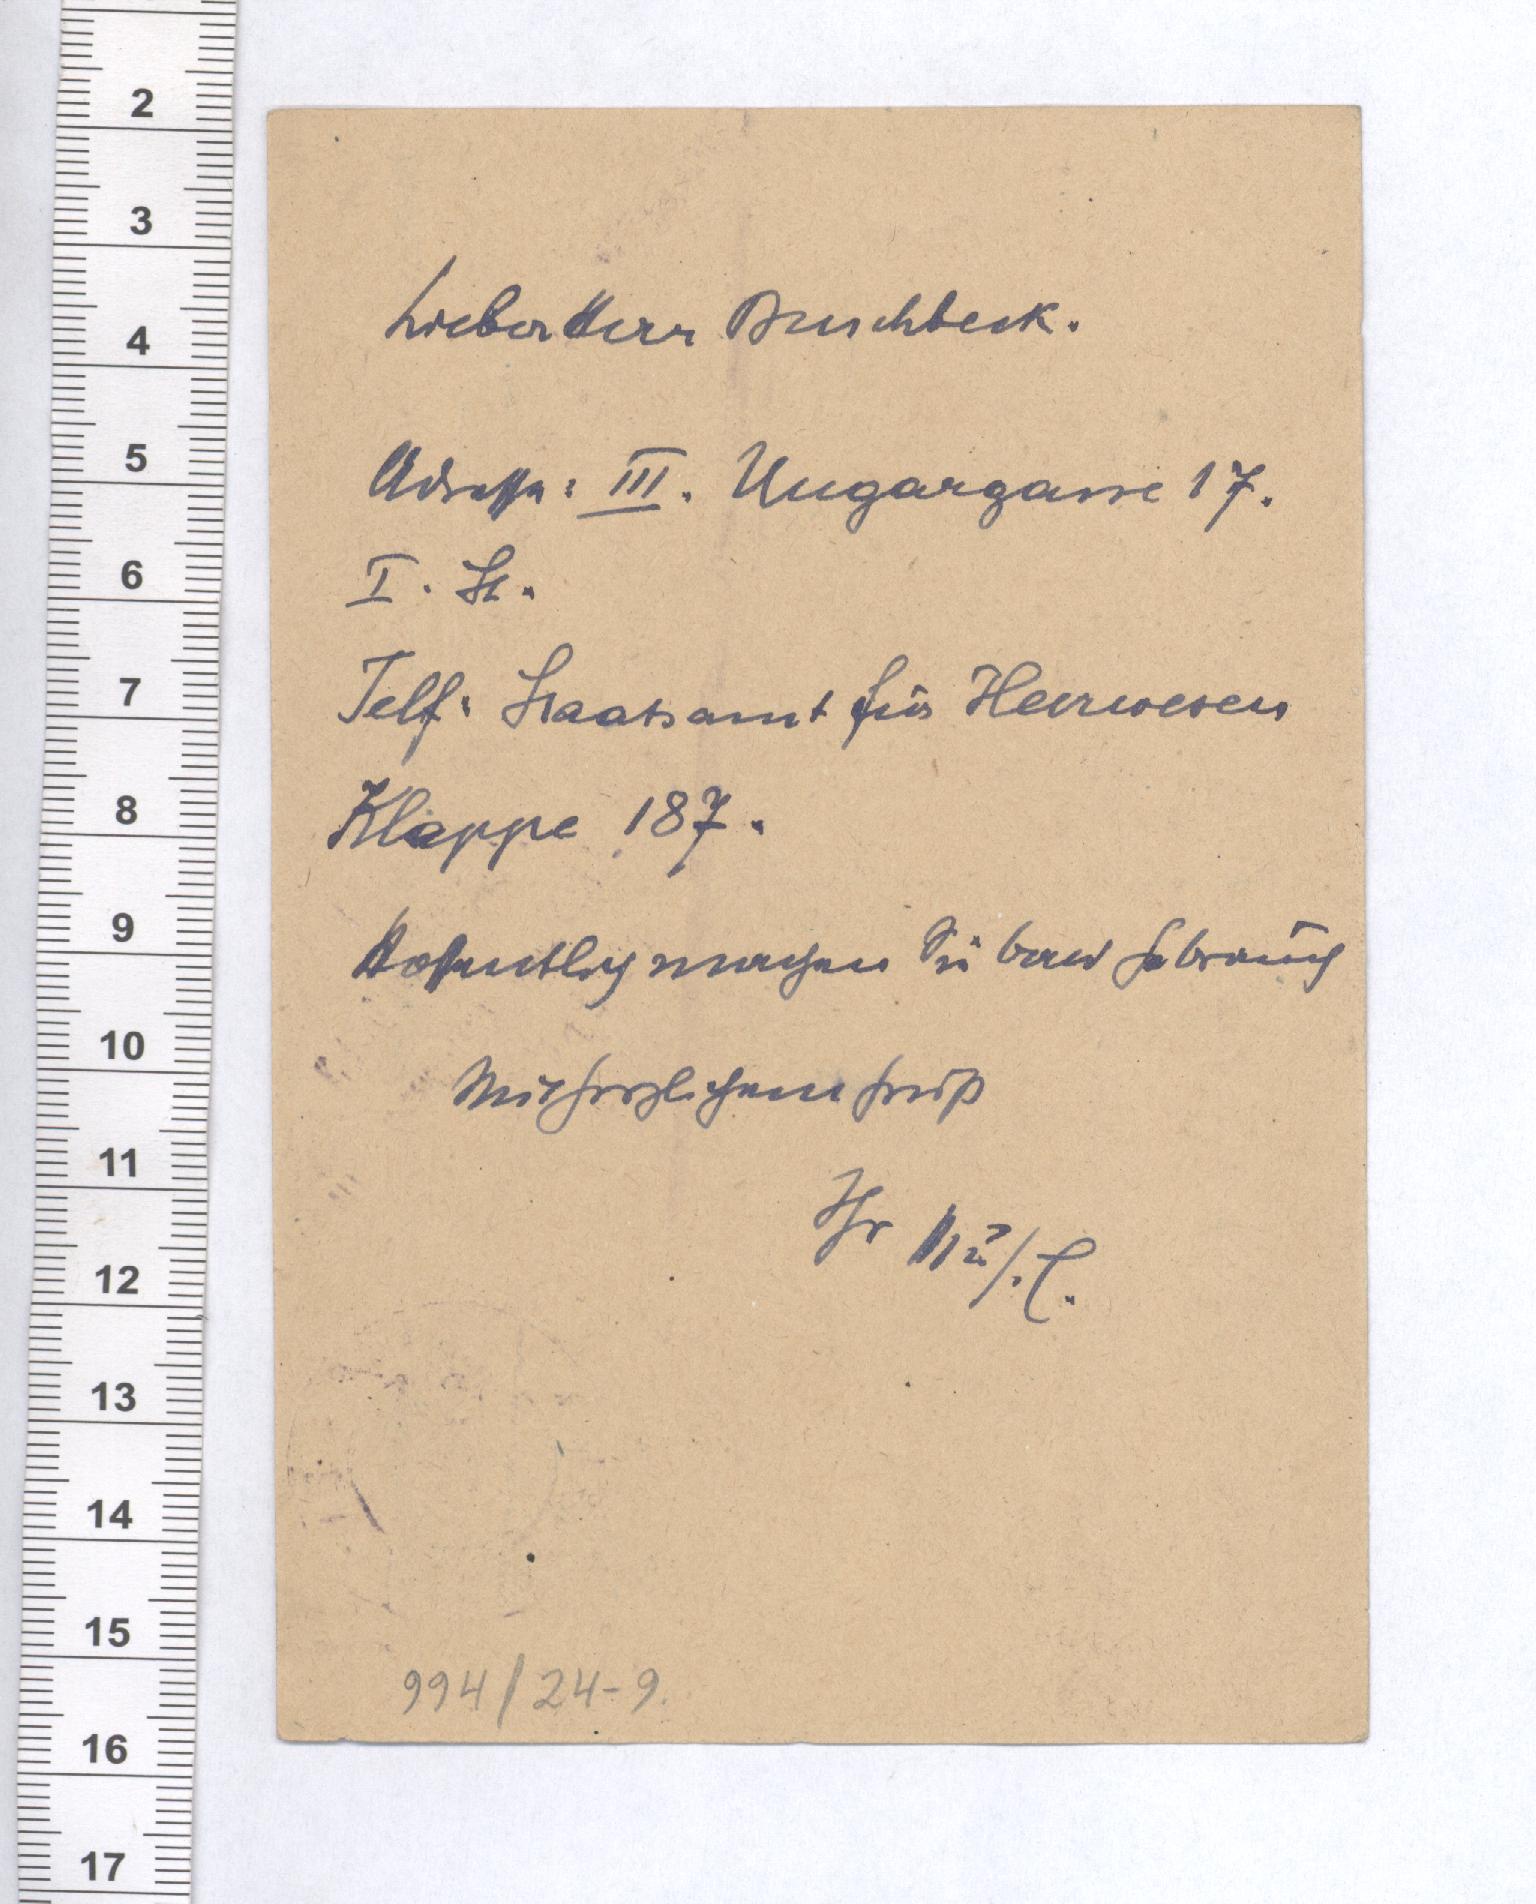 2
3
4
5
6
7
8
9
10
11
12
13
14
15
16
17
Lieber Herr Buschbeck.
Adresse: III. Ungargasse 17.
I. St.
Telf: Staatsamt für Heerwesen
Klappe 187.
Hoffentlich machen Sie bald Gebrauch
Mit herzlichem Gruß
Ihr
994/24-9.